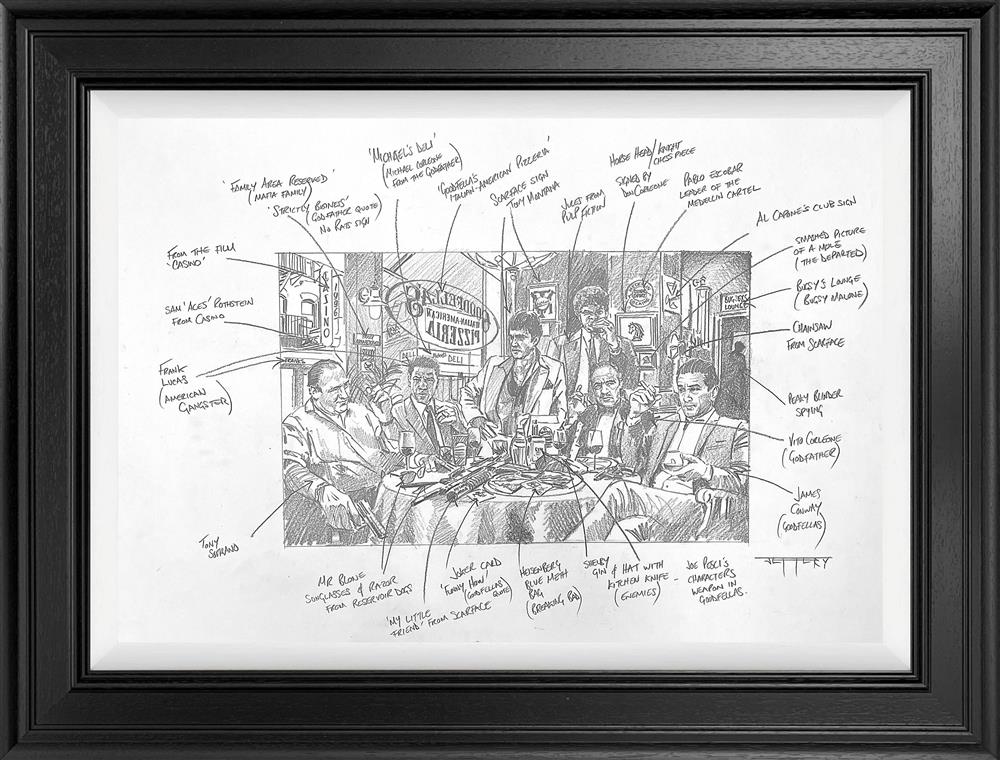 'MICHAEL'S DELI'
(MICHAEL CORLEONE
FROM THE GODFATHER)
'GOODFELLA'S
ITALIAN-AMERICAN PIZZERIA'
SCARFACE SIGN
TONY MONTANA
JULES FROM
PULP FICTION
HORSE HEAD/KNIGHT
CHESS PIECE
SIGNED BY
DON CORLEONE
PABLO ESCOBAR
LEADER OF THE
MEDELLIN CARTEL
'FAMILY AREA RESERVED'
(MAFIA FAMILY)
'STRICTLY BUSINESS'
(GODFATHER QUOTE)
NO RATS SIGN
AL CAPONE'S CLUB SIGN
SMASHED PICTURE
OF A MOLE
(THE DEPARTED)
FROM THE FILM
'CASINO'
BUGSY'S LOUNGE
(BUGSY MALONE)
SAM 'ACES' ROTHSTEIN
FROM CASINO
CHAINSAW
FROM SCARFACE
FRANK
LUCAS
(AMERICAN
GANGSTER)
PEAKY BLINDER
SPYING
VITO CORLEONE
(GODFATHER)
JAMES
CONWAY
(GOODFELLAS)
CASINO
GOODFELLA'S
ITALIAN-AMERICAN
PIZZERIA
DELI
DELI
BUGSY'S
LOUNGE
TONY
SOPRANO
MR BLONE
SUNGLASSES & RAZOR
FROM RESERVOIR DOGS
'MY LITTLE
FRIEND' FROM SCARFACE
JOKER CARD
'FUNNY HOW'
(GOODFELLAS
QUOTE)
HEISENBERG
BLUE METH
BAG
(BREAKING BAD)
SHELBY
GIN & HAT WITH
KITCHEN KNIFE -
(ENEMIES)
JOE PESCI'S
CHARACTERS
WEAPON IN
GOODFELLAS.
JEFFERY